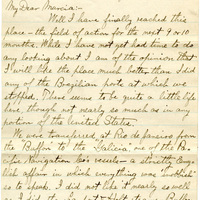 My Dear Marcia:-
Well I have finally reached this
place - the field of action for the next 9 or 10
months. While I have not yet had time to do
any looking about I am of the opinion that
I will like the place much better than I did
any of the Brazilian ports at which we
stopped. There seems to be quite a little life
here, though not nearly so much as in any
portion of the United States.
We were transferred at Rio de Janeiro from
the to the "Galicia," one of the
Navigation Co's vessels - a strictly Eng-
lish affair in which everything was
so to speak. I did not like it nearly so well
as I did the